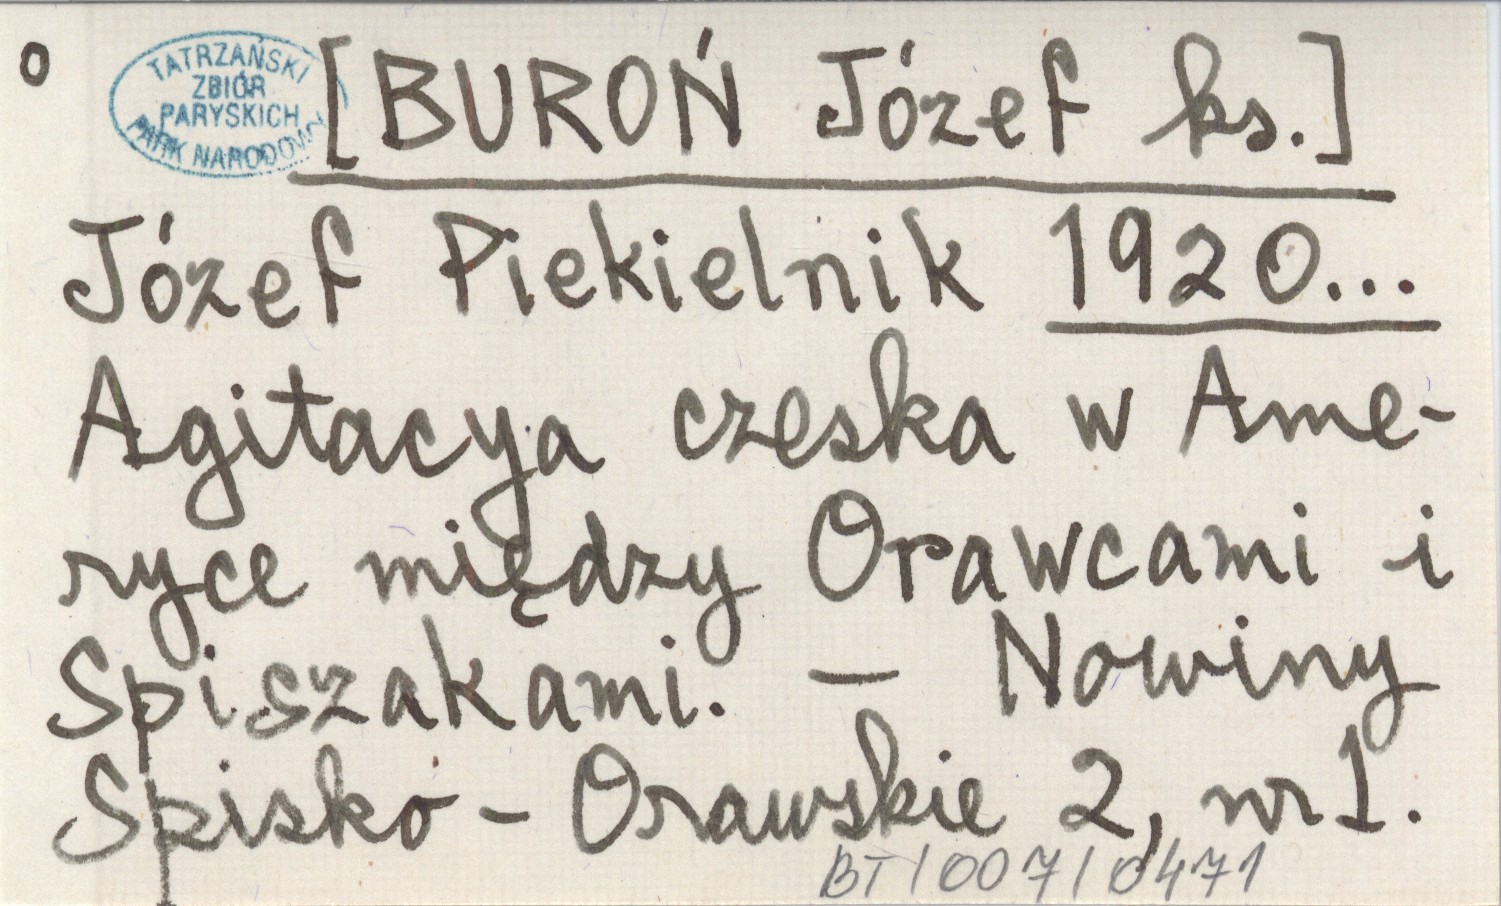 o
TATRZAŃSKI
ZBIÓR
PARYSKICH
PARK NARODOWY
[BUROŃ Józef ks.]
Józef Piekielnik 1920...
Agitacya czeska w Ame-
ryce między Orawcami i
Spiszakami. — Nowiny
Spisko-Orawskie 2, nr 1.
BT/007/0471